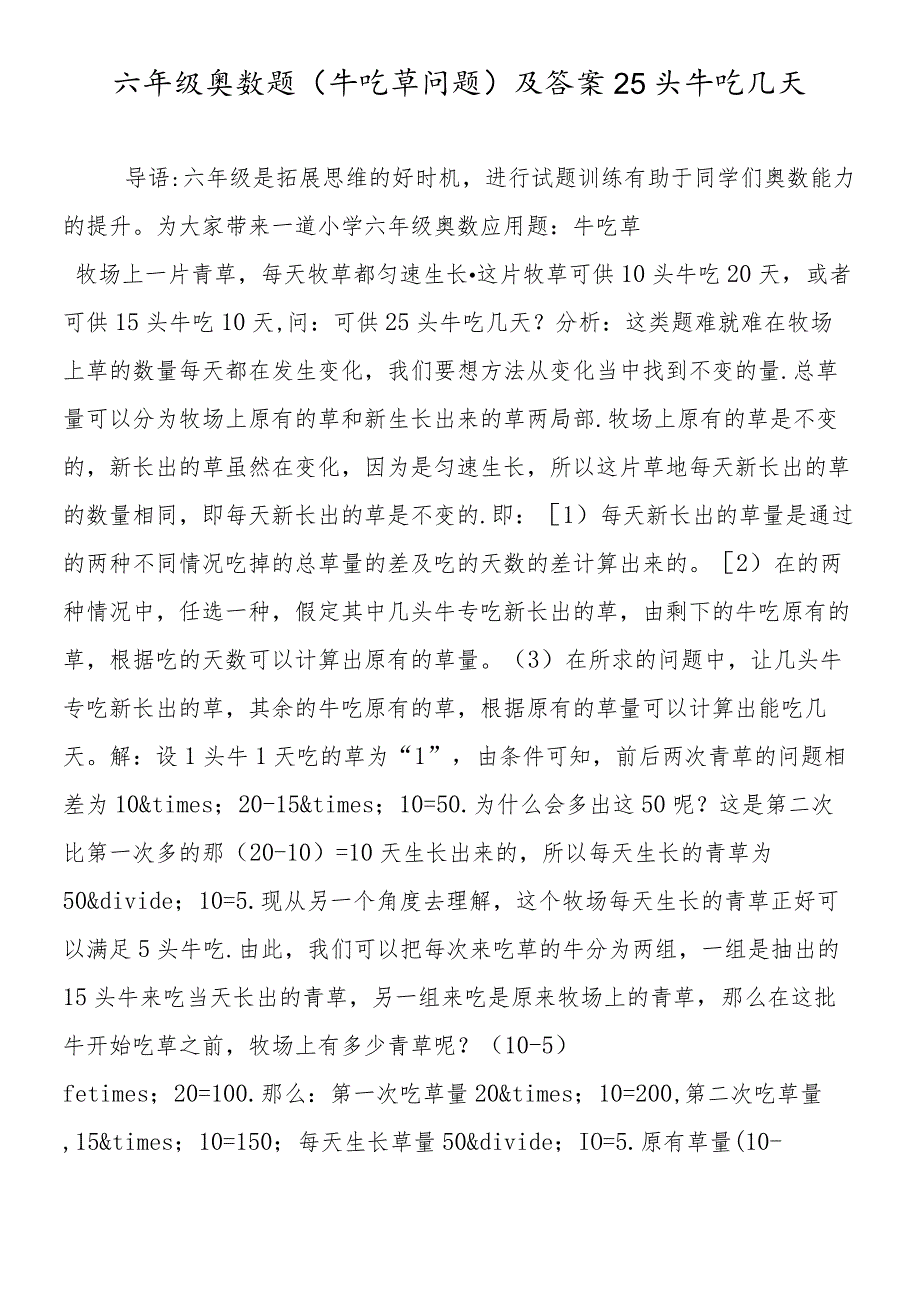 六年级奥数题（牛吃草问题）及答案25头牛吃几天
导语:六年级是拓展思维的好时机，进行试题训练有助于同学们奥数能力
的提升。为大家带来一道小学六年级奥数应用题：牛吃草
牧场上一片青草，每天牧草都匀速生长•这片牧草可供10头牛吃20天，或者
可供15头牛吃10天,问：可供25头牛吃几天？分析：这类题难就难在牧场
上草的数量每天都在发生变化，我们要想方法从变化当中找到不变的量.总草
量可以分为牧场上原有的草和新生长出来的草两局部.牧场上原有的草是不变
的，新长出的草虽然在变化，因为是匀速生长，所以这片草地每天新长出的草
的数量相同，即每天新长出的草是不变的.即：［1）每天新长出的草量是通过
的两种不同情况吃掉的总草量的差及吃的天数的差计算出来的。［2）在的两
种情况中，任选一种，假定其中几头牛专吃新长出的草，由剩下的牛吃原有的
草，根据吃的天数可以计算出原有的草量。（3）在所求的问题中，让几头牛
专吃新长出的草，其余的牛吃原有的草，根据原有的草量可以计算出能吃几
天。解：设1头牛1天吃的草为“1”，由条件可知，前后两次青草的问题相
差为10&times；20-15&times；10=50.为什么会多出这50呢？这是第二次
比第一次多的那（20-10）=10天生长出来的，所以每天生长的青草为
50&divide；10=5.现从另一个角度去理解，这个牧场每天生长的青草正好可
以满足5头牛吃.由此，我们可以把每次来吃草的牛分为两组，一组是抽出的
15头牛来吃当天长出的青草，另一组来吃是原来牧场上的青草，那么在这批
牛开始吃草之前，牧场上有多少青草呢？（10-5）
fetimes；20=100.那么：第一次吃草量20&times；10=200,第二次吃草量
,15&times；10=150；每天生长草量50&divide；IO=5.原有草量(10-